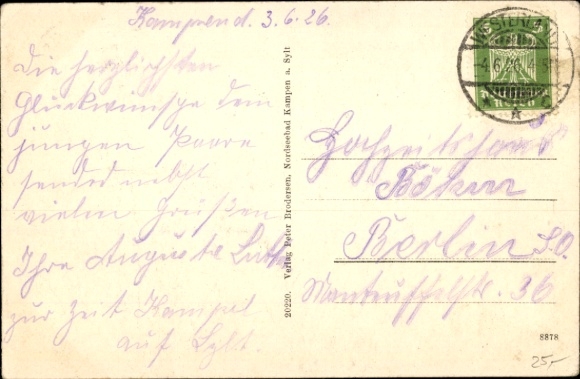 Kampen d. 3.6.26.
Die herzlichsten
Glückwünsche dem
jungen Paare
sendet nebst
vielen Grüßen
Ihre Auguste
zur Zeit Kampel
auf Sylt.
20220. Verlag Peter Brodersen, Nordseebad Kampen a. Sylt
WESTERLAND
-4.6.26.4-5N
Hochzeitshaus
Böken
Berlin SO.
Manteuffelstr. 36
8878
25,-